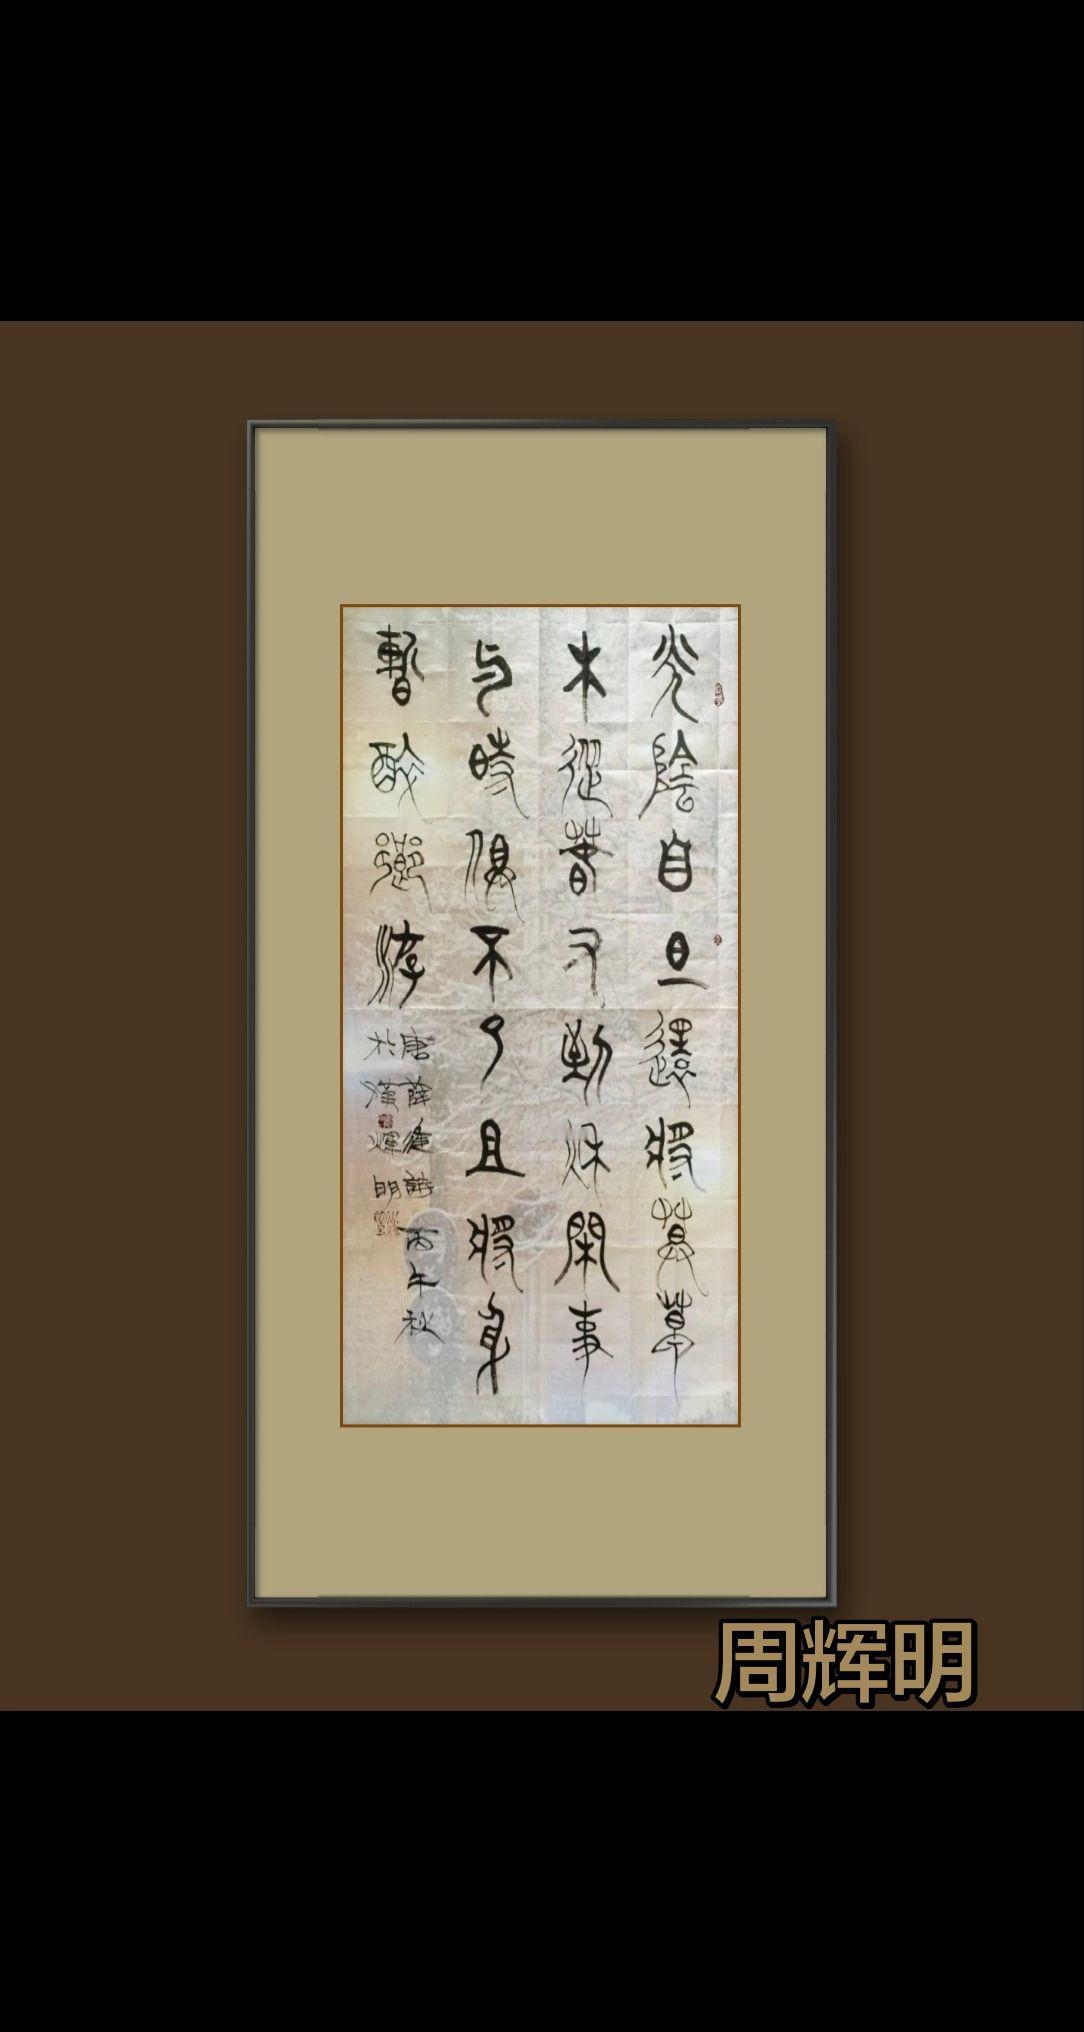 光陰自旦還將暮草
木從春又到秋閑事
与時俱不了且將身
暫醉鄉游
唐薛逢詩丙午秋
於漢煇明
周辉明